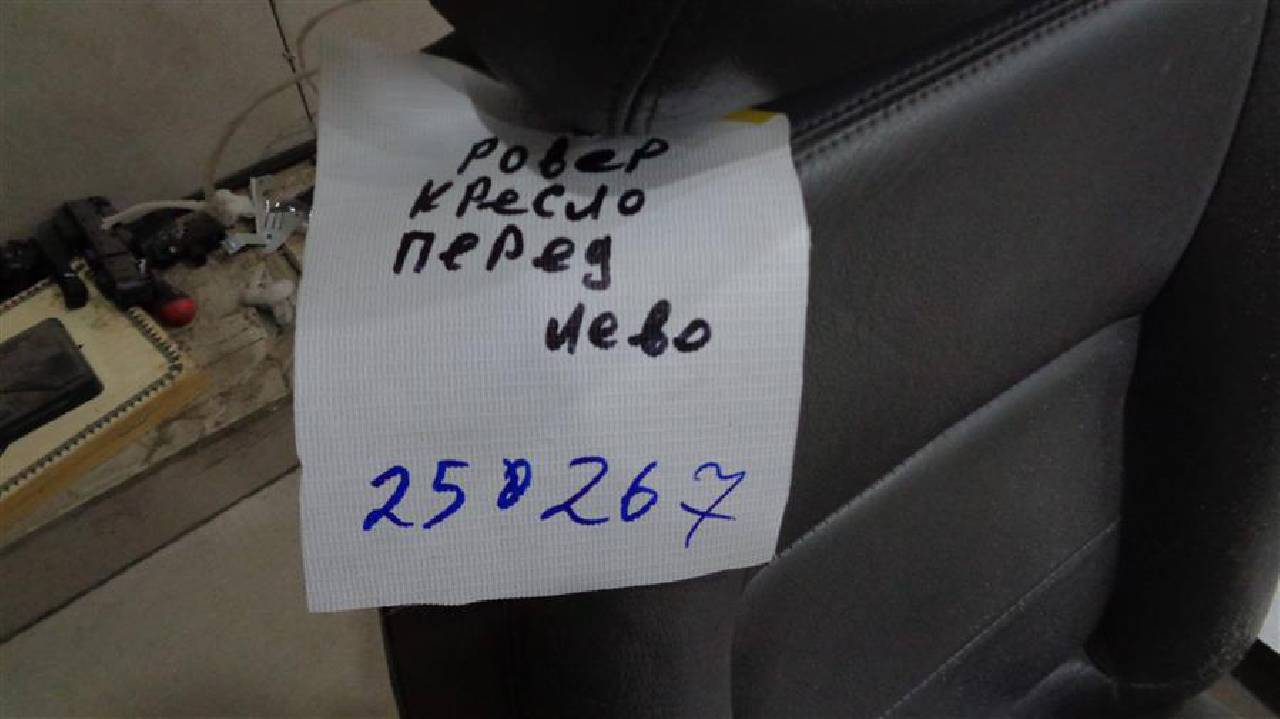 Ровер
кресло
перед
лево
250267